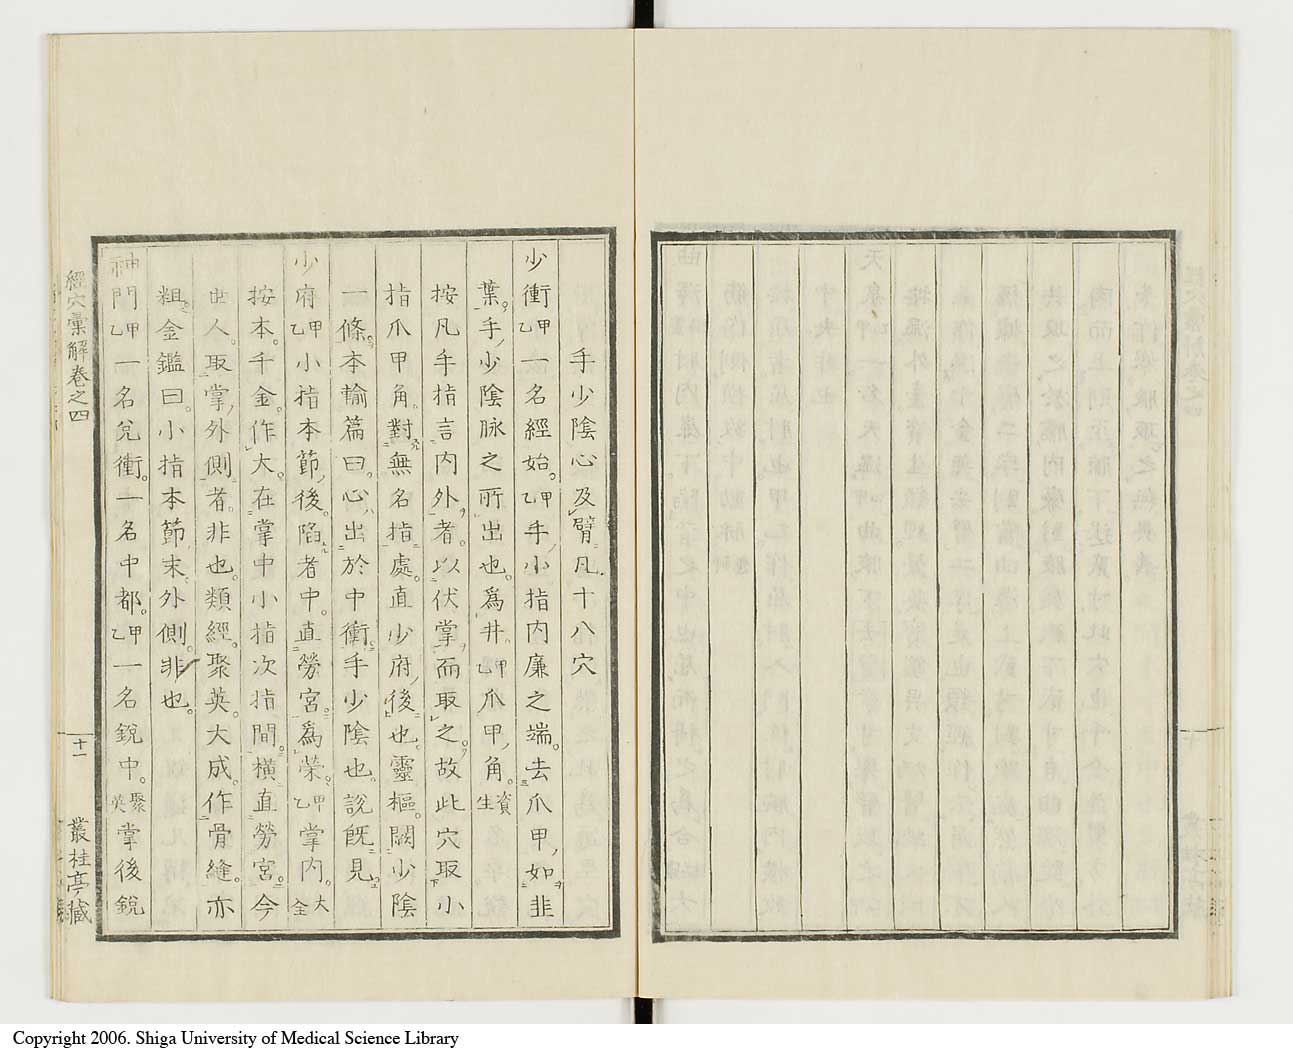 手少陰心及臂凡十八穴
少衝甲乙一名經始。甲乙手小指內廉之端。去爪甲如韭
葉。手少陰脉之所出也。爲井。甲乙爪甲角。資生
按凡手指言內外者。以伏掌而取之。故此穴取小
指爪甲角。對無名指處。直少府後也靈樞闕少陰
一條。本輸篇曰。心出於中衝。手少陰也。說既見。
少府甲乙小指本節後陷者中。直勞宮。爲榮。甲乙掌內。大全
按本。千金。作大。在掌中小指次指間。橫直勞宮。今
世人。取掌外側者。非也。類經。聚英。大成。作骨縫。亦
粗。金鑑曰。小指本節末。外側。非也。
神門甲乙一名兌衝。一名中都。甲乙一名銳中。聚英掌後銳
經穴彙解卷之四
十一
叢桂亭藏
Copyright 2006. Shiga University of Medical Science Library